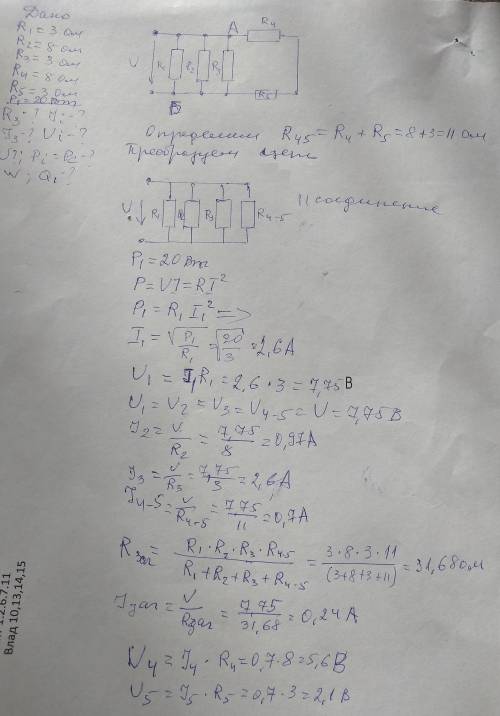 Дано
R1 = 3 ом
R2 = 8 ом
R3 = 3 ом
R4 = 8 ом
R5 = 3 ом
P1 = 20 Вт
RЭ - ? Ii - ?
IЭ - ? Ui - ?
U?; Pi = Pi - ?
W; Qi - ?
A
R4
U
R1
R2
R3
R5
Б
Определим R45 = R4 + R5 = 8+3 = 11 ом
Преобразуем цепь
U
R1
R2
R3
R4-5
|| соединение
P1 = 20 Вт
P = UI = RI²
P1 = R1 I1² =>
I1 = √P1/R1 = √20/3 = 2,6 A
U1 = I1 R1 = 2,6 · 3 = 7,75 В
U1 = U2 = U3 = U4-5 = U = 7,75 В
I2 = U/R2 = 7,75/8 = 0,97 A
I3 = U/R3 = 7,75/3 = 2,6 A
I4-5 = U/R4-5 = 7,75/11 = 0,7 A
Rзаг = R1 · R2 · R3 · R45/R1 + R2 + R3 + R4-5 = 3 · 8 · 3 · 11/(3+8+3+11) = 31,68 ом
Iзаг = U/Rзаг = 7,75/31,68 = 0,24 A
U4 = I4 · R4 = 0,7 · 8 = 5,6 В
U5 = I5 · R5 = 0,7 · 3 = 2,1 В
1.2.6.7.11
Влад 10,13,14,15